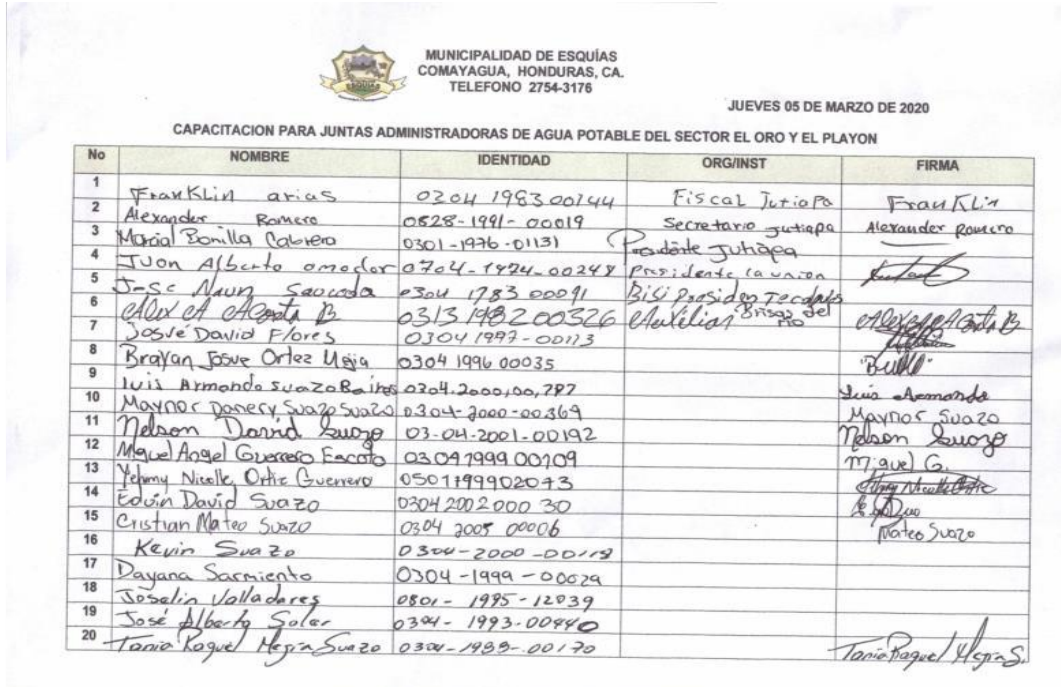 MUNICIPALIDAD DE ESQUÍAS
COMAYAGUA, HONDURAS, CA.
TELEFONO 2754-3176
ESQUÍAS
JUEVES 05 DE MARZO DE 2020
CAPACITACION PARA JUNTAS ADMINISTRADORAS DE AGUA POTABLE DEL SECTOR EL ORO Y EL PLAYON
No NOMBRE IDENTIDAD ORG/INST FIRMA
1 FranKLin arias 0204 1983 00244 Fiscal Jutiapa FranKLin
2 Alexander Romero 0828-1991-00019 Secretario Jutiapa Alexander Romero
3 Marcial Bonilla Cabrera 0301-1976-01131 Presidente Jutiapa
4 Juan Alberto amador 0704-1974-00248 Presidente la union
5 Jose Naun Sauceda 0304 1783 00091
6 Alex A Acosta B 0313 1982 00326 Auxiliar Brisas del rio
7 Josué David Flores 0304 1997-00113
8 Brayan Josue Ortez Mejia 0304 1996 00035
9 luis Armando suazo Raires 0304.2000,00,787 Luis Armando
10 Maynor Danery Suazo Suazo 0304-2000-00369 Maynor Suazo
11 Nelson David Suazo 03-04-2001-00192 Nelson Suazo
12 Miguel Angel Guerrero Escoto 0304 1999 00109 Miguel G.
13 Yehmy Nicolle Ortiz Guerrero 0501199902073
14 Edwin David Suazo 0304 2002 000 30
15 Cristian Mateo Suazo 0304 2005 00006 Mateo Suazo
16 Kevin Suazo 0304-2000-00118
17 Dayana Sarmiento 0304-1999-00029
18 Joselin Valladares 0801-1995-12039
19 José Alberto Soler 0304-1993-00440
20 Tania Raquel Mejia Suazo 0304-1989-00170 Tania Raquel Mejia S.